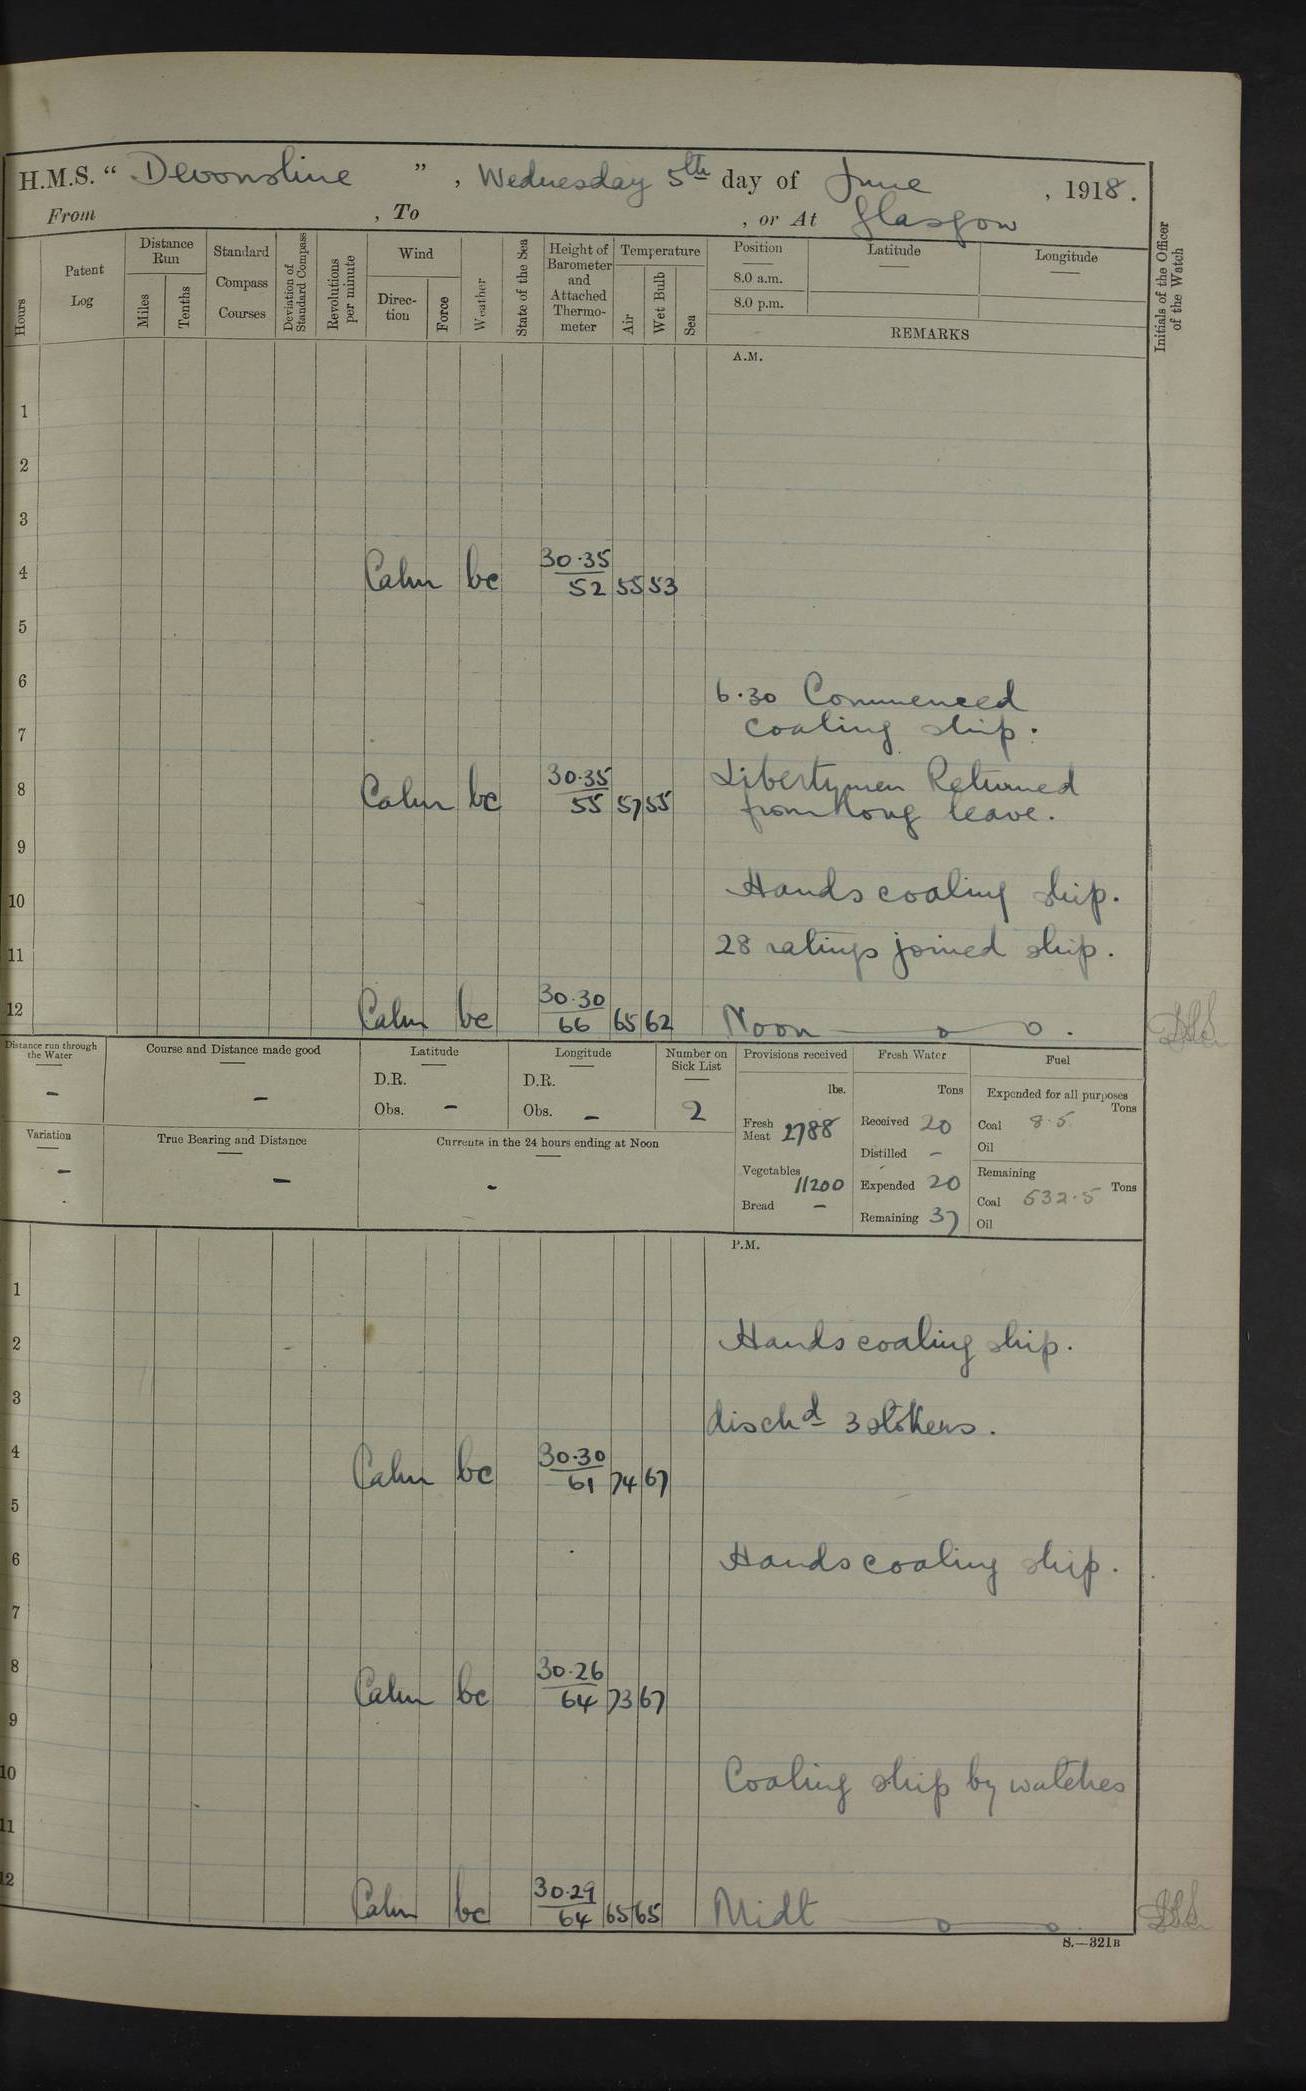 H.M.S. “ Devonshire ” , Wednesday 5th day of June , 1918.
From , To , or At Glasgow
Hours
Patent Log
Distance Run
Miles
Tenths
Standard Compass Courses
Deviation of Standard Compass
Revolutions per minute
Wind
Direction
Force
Weather
State of the Sea
Height of Barometer and Attached Thermometer
Temperature
Air
Wet Bulb
Sea
Position
8.0 a.m.
8.0 p.m.
Latitude
Longitude
REMARKS
Initials of the Officer of the Watch
A.M.
1
2
3
4 Calm bc 30.35/52 55 53
5
6
6.30 Commenced
7 coaling ship.
8 Calm bc 30.35/55 57 55 Libertymen Returned
from long leave.
9
10 Hands coaling ship.
11 28 ratings joined ship.
12 Calm bc 30.30/66 65 62 Noon
Distance run through the Water
-
Course and Distance made good
-
Latitude
D.R.
Obs. -
Longitude
D.R.
Obs. -
Number on Sick List
2
Variation
-
True Bearing and Distance
-
Currents in the 24 hours ending at Noon
-
Provisions received
lbs.
Fresh Meat 2788
Vegetables 11200
Bread -
Fresh Water
Tons
Received 20
Distilled -
Expended 20
Remaining 37
Fuel
Expended for all purposes
Tons
Coal 8.5
Oil
Remaining
Tons
Coal 532.5
Oil
P.M.
1
2 Hands coaling ship.
3
dischd 3 stokers.
4 Calm bc 30.30/61 74 67
5
6 Hands coaling ship.
7
8 Calm bc 30.26/64 73 67
9
10 Coaling ship by watches
11
12 Calm bc 30.29/64 65 65 Midt
S.—321B